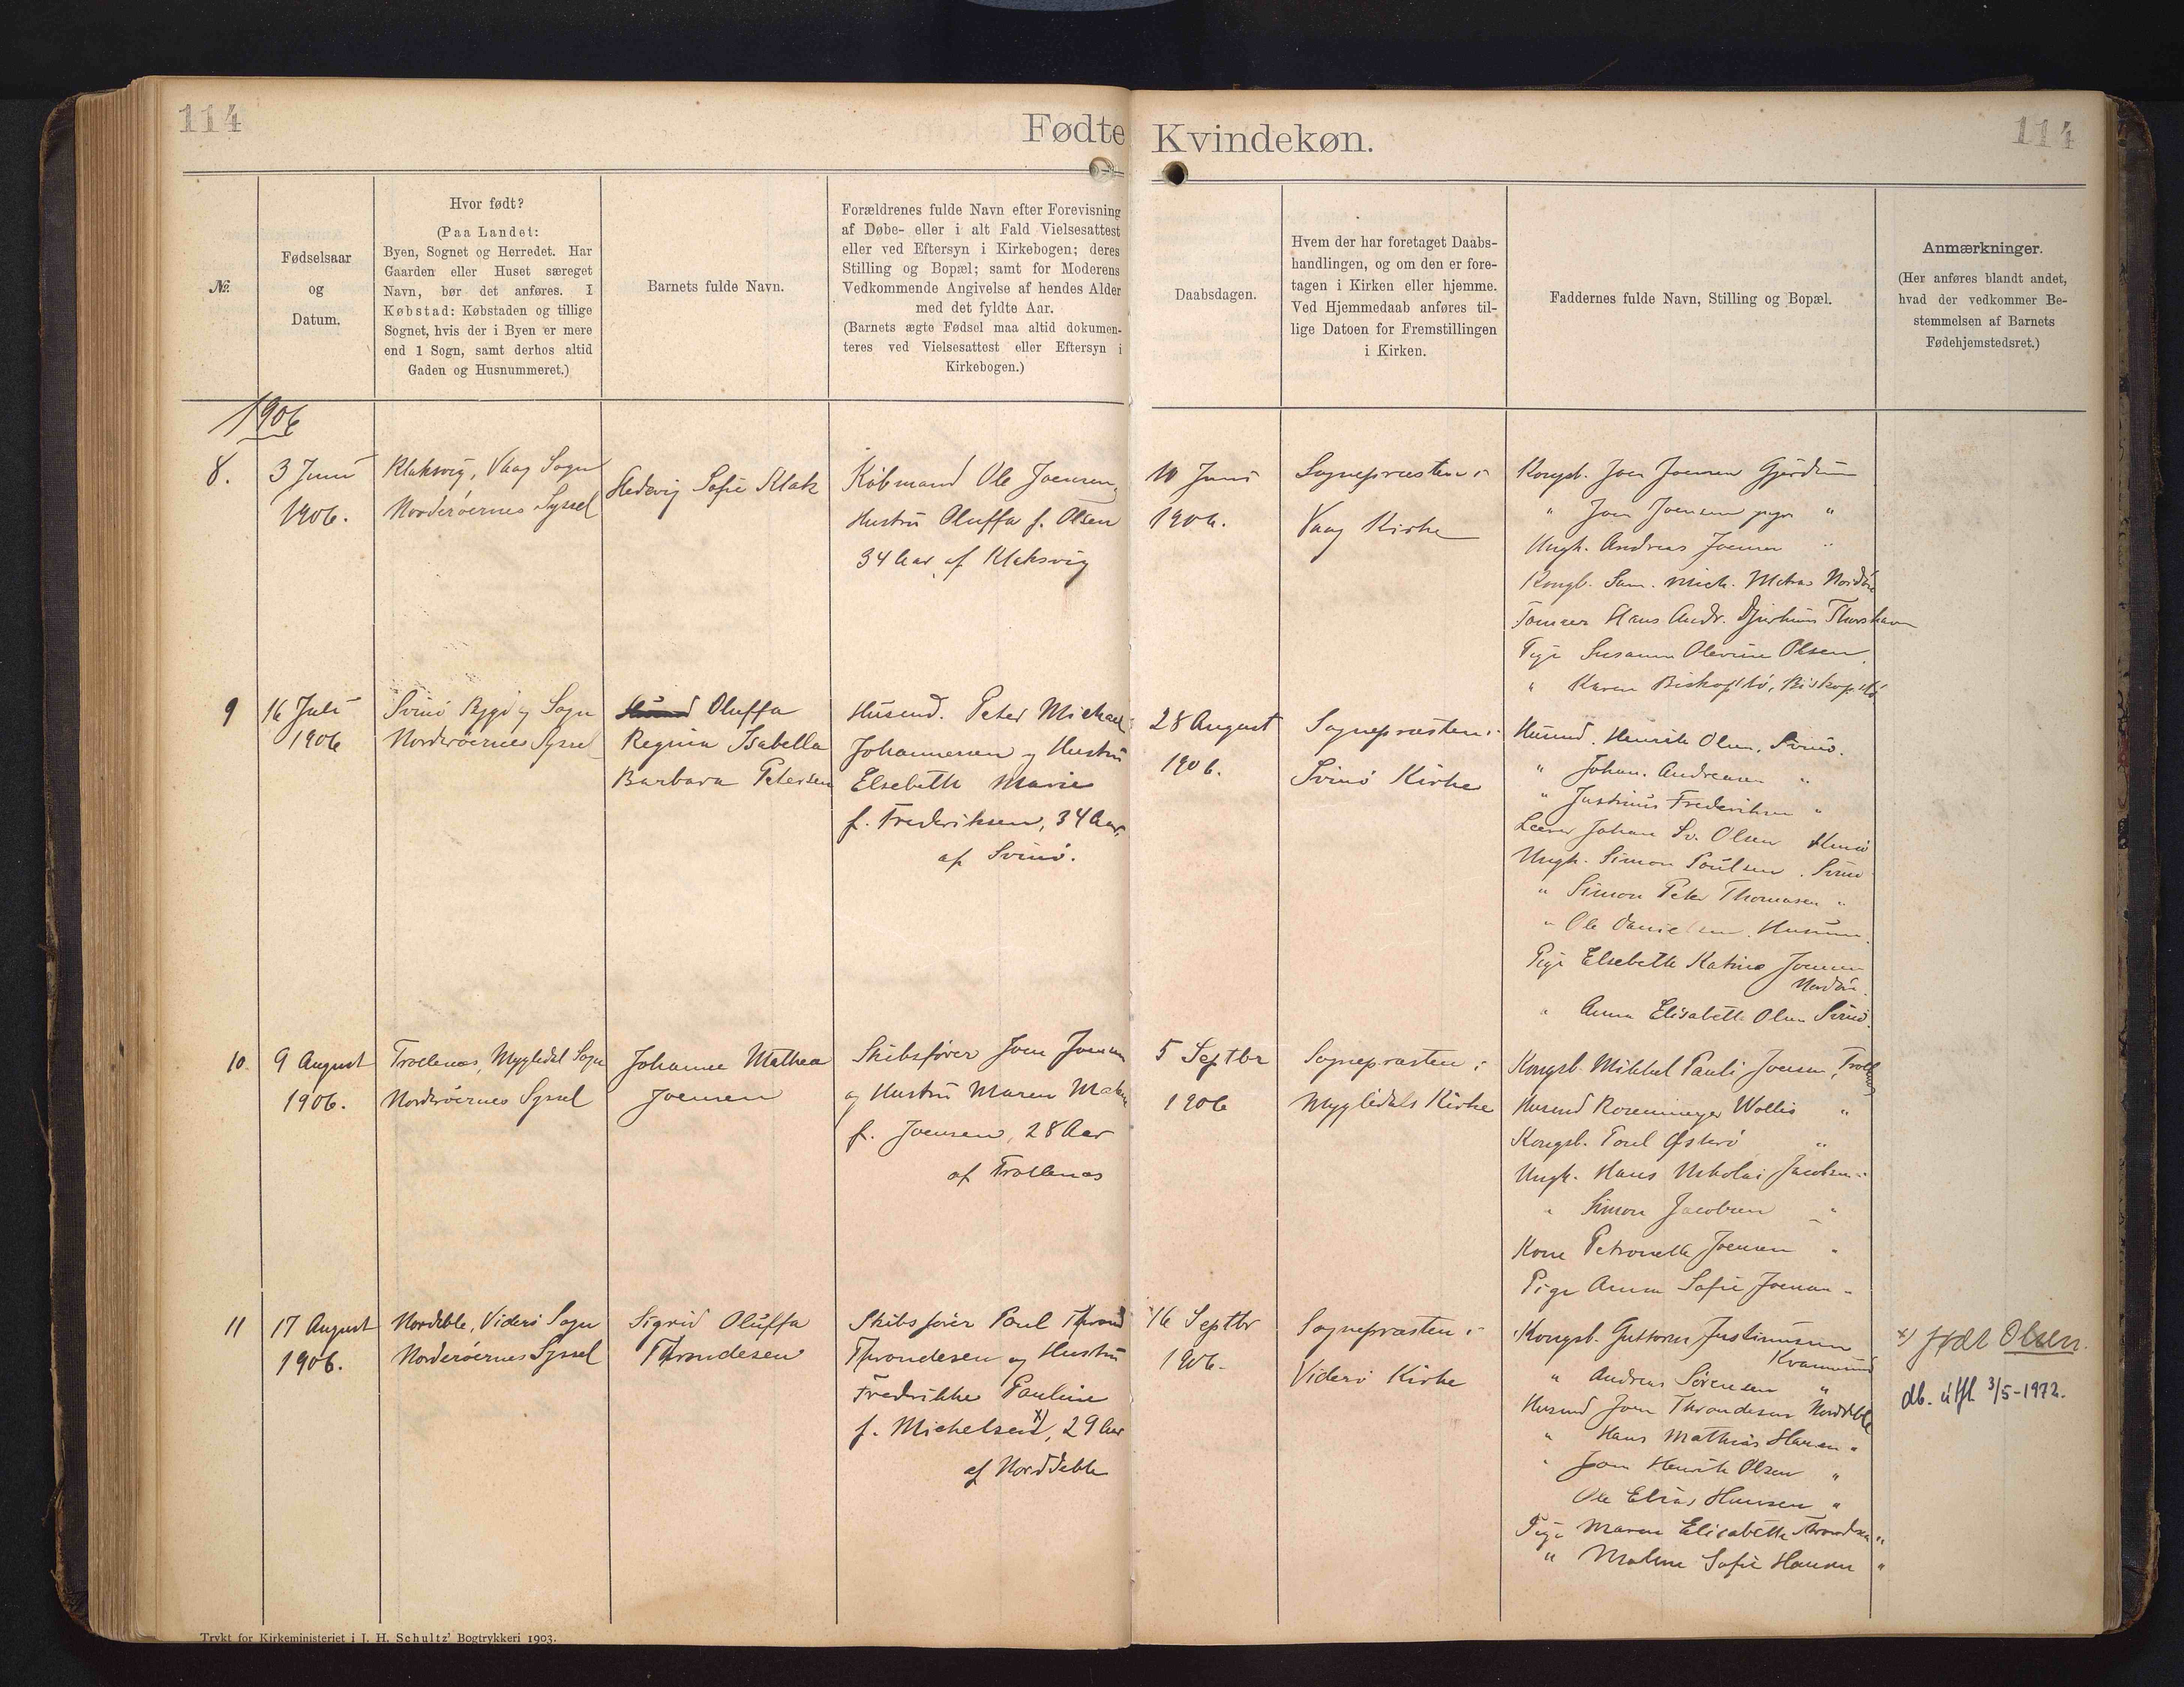 114
Fødte Kvindekøn.
114
№.
Fødselsaar
og
Datum.
Hvor født?
(Paa Landet:
Byen, Sognet og Herredet. Har
Gaarden eller Huset særeget
Navn, bør det anføres. I
Købstad: Købstaden og tillige
Sognet, hvis der i Byen er mere
end 1 Sogn, samt derhos altid
Gaden og Husnummeret.)
Barnets fulde Navn.
Forældrenes fulde Navn efter Forevisning
af Døbe- eller i alt Fald Vielsesattest
eller ved Eftersyn i Kirkebogen; deres
Stilling og Bopæl; samt for Moderens
Vedkommende Angivelse af hendes Alder
med det fyldte Aar.
(Barnets ægte Fødsel maa altid dokumen-
teres ved Vielsesattest eller Eftersyn i
Kirkebogen.)
Daabsdagen.
Hvem der har foretaget Daabs-
handlingen, og om den er fore-
tagen i Kirken eller hjemme.
Ved Hjemmedaab anføres til-
lige Datoen for Fremstillingen
i Kirken.
Faddernes fulde Navn, Stilling og Bopæl.
Anmærkninger.
(Her anføres blandt andet,
hvad der vedkommer Be-
stemmelsen af Barnets
Fødehjemstedsret.)
1906
8.
3 Juni
1906.
Klaksvig, Vaag Sogn
Norderøernes Syssel
Hedevig Sofie Klak
Købmand Ole Joensen,
Hustru Oluffa f. Olsen
34 Aar af Klaksvig
10 Juni
1906.
Sognepræsten i
Vaag Kirke
Kongsb. Joen Joensen Gjerdum
" Joen Joensen "
Ungk. Andreas Joensen "
Kongb. Sam. Mich. Matras
Hans Andr. Djurhuus Thorshavn
Pige Susanne Olevine Olsen
" Karen Biskopstø, Biskopstø
9
16 Juli
1906
Svinø Bygd og Sogn
Norderøernes Syssel
Oluffa
Regina Isabella
Barbara Petersen
Husmd. Peter Michael
Johannesen og Hustru
Elsebeth Marie
f. Frederiksen, 34 Aar,
af Svinø.
28 August
1906.
Sognepræsten i
Svinø Kirke
Husmd. Henrik Olsen, Svinø.
" Johan. Andreasen "
" Justinus Frederiksen "
Lærer Johan Sv. Olsen
Ungk. Simon Poulsen. Svinø
" Simon Peter Thomasen "
" Ole Danielsen. Husum.
Pige Elsebeth Katrine Joensen
" Anna Elisabeth Olsen Svinø.
10.
9 August
1906.
Trollenæs, Mygledal Sogn
Norderøernes Syssel
Johanne Mathea
Joensen
Skibsfører Joen Joensen
og Hustru Maren
f. Joensen, 28 Aar
af Trollenæs
5 Septbr
1906
Sognepræsten i
Mygledals Kirke
Kongsb. Mikkel Pauli Joensen, Trollenæs
Husmd Rosenmeyer Wollis "
Kongsb. Poul Østerø "
Ungk. Hans Nikolai Jacobsen "
" Simon Jacobsen "
Kone Petronella Joensen "
Pige Anna Sofie Joensen "
11
17 August
1906.
Norddeble, Viderø Sogn
Norderøernes Syssel
Sigrid Oluffa
Throndesen
Skibsfører Poul Thrond
Throndesen og Hustru
Fredrikke Pauline
f. Michelsen x), 29 Aar
af Norddeble
16 Septbr
1906.
Sognepræsten i
Viderø Kirke
Kongsb. Guttorm Justinussen
Kvannesund
" Andreas Sørensen "
Husmd Joen Throndesen Norddeble
" Hans Mathias Hansen "
" Joen Henrik Olsen "
Ole Elias Hansen "
Pige Maren Elisabeth Throndesen "
" Malene Sofie Hansen "
x) født Olsen.
db. útfl 3/5-1972.
Trykt for Kirkeministeriet i J. H. Schultz' Bogtrykkeri 1903.